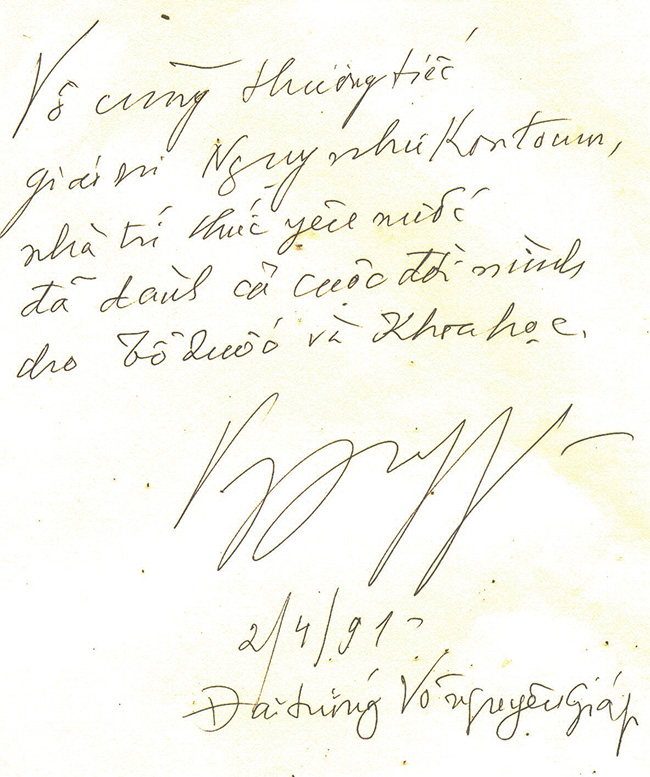 Vô cùng thương tiếc
giáo sư Ngụy như Kontoum,
nhà trí thức yêu nước
đã dành cả cuộc đời mình
cho Tổ Quốc và Khoa học.
2/4/91
Đại tướng Võ nguyên Giáp